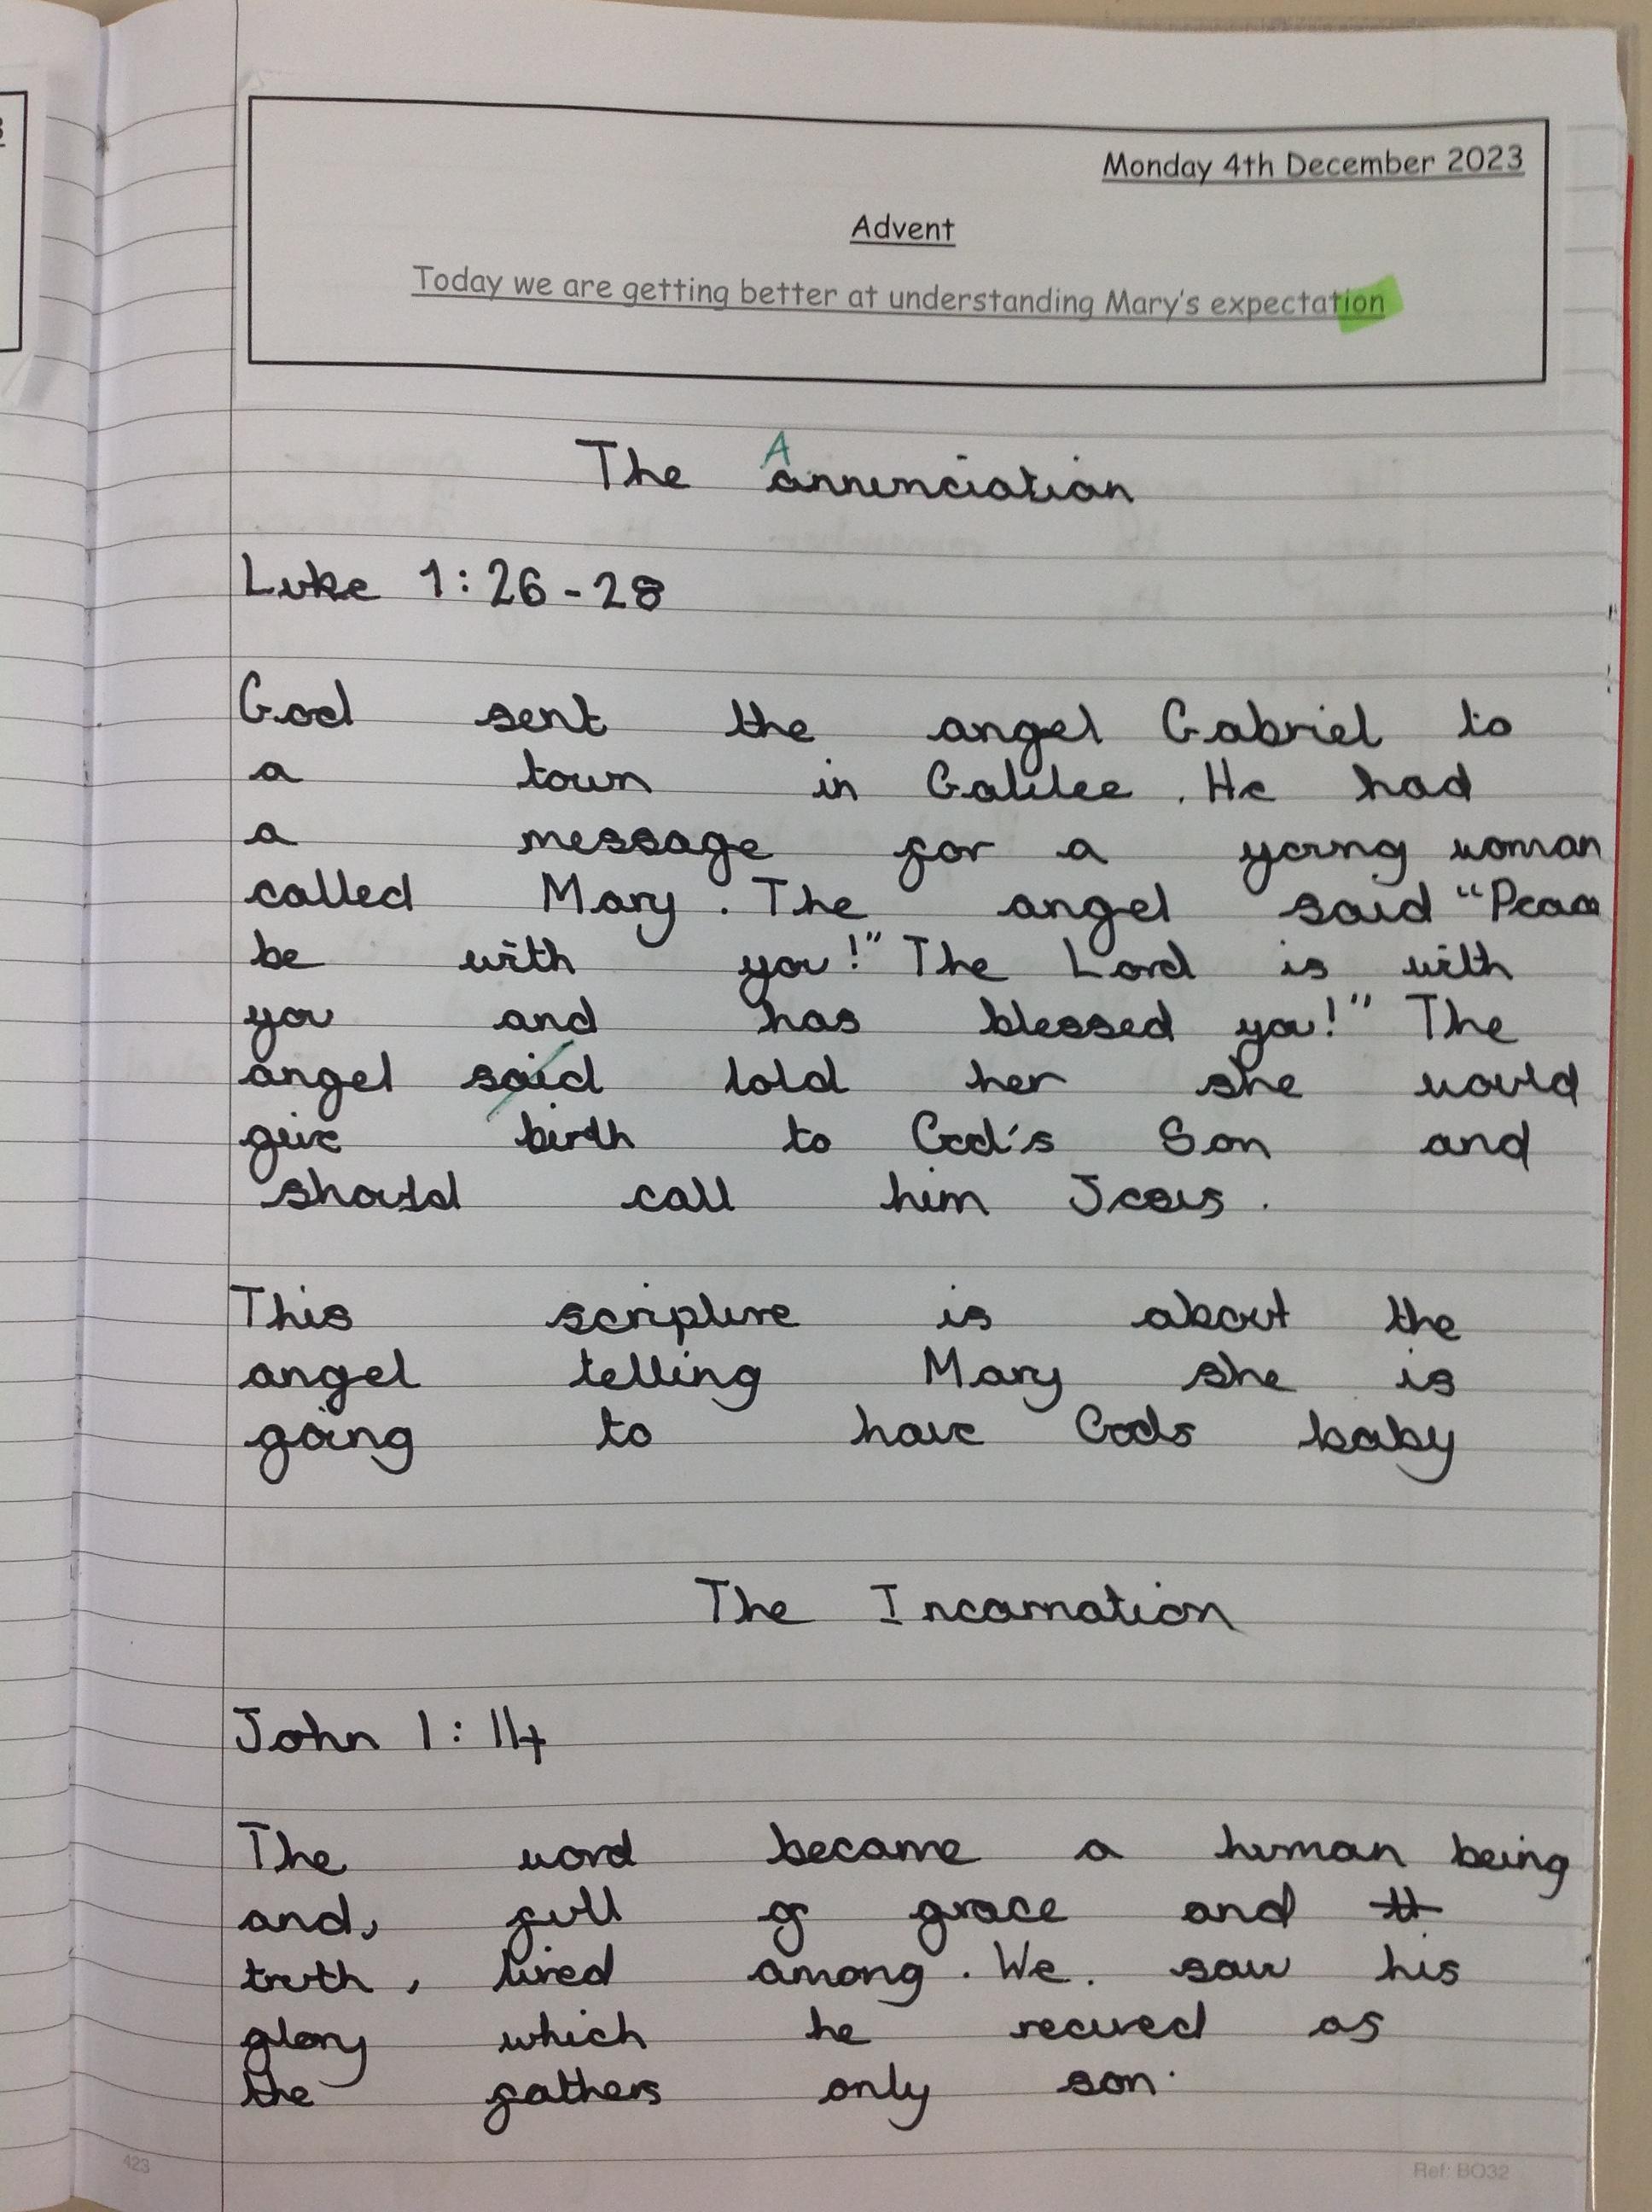 Monday 4th December 2023
Advent
Today we are getting better at understanding Mary's expectation
The Annunciation
Luke 1:26-28
God sent the angel Gabriel to
a town in Galilee. He had
a message for a young woman
called Mary. The angel said "Peace
be with you!" The Lord is with
you and has blessed you!" The
angel said told her she would
give birth to God's Son and
should call him Jesus.
This scripture is about the
angel telling Mary she is
going to have Gods baby
The Incarnation
John 1:14
The word became a human being
and, full of grace and tt
truth, lived among. We. saw his
glory which he recived as
the fathers only son.
423
Ref: BO32